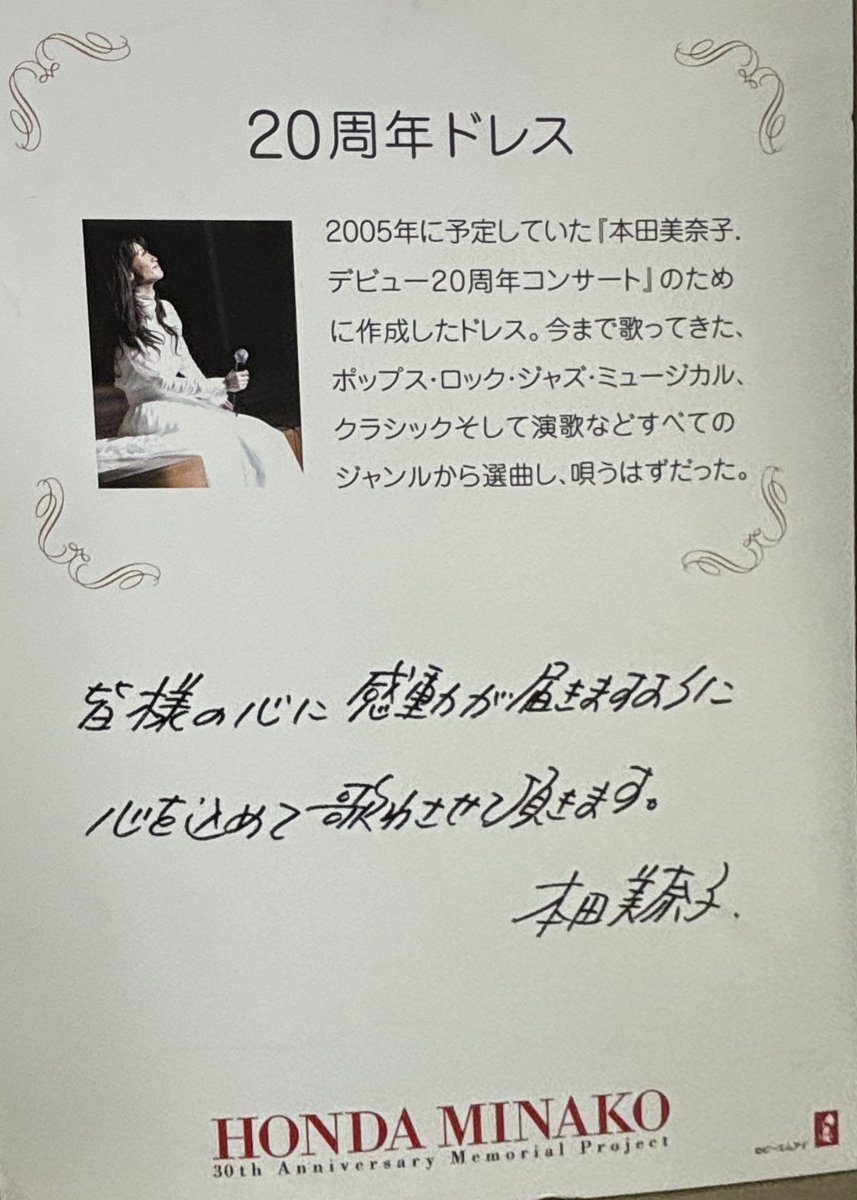 20周年ドレス
2005年に予定していた『本田美奈子.
デビュー20周年コンサート』のため
に作成したドレス。今まで歌ってきた、
ポップス・ロック・ジャズ・ミュージカル、
クラシックそして演歌などすべての
ジャンルから選曲し、唄うはずだった。
皆様の心に感動が届きますように
心を込めて歌わさせて頂きます。
本田美奈子.
HONDA MINAKO
30th Anniversary Memorial Project
©ビーエムアイ